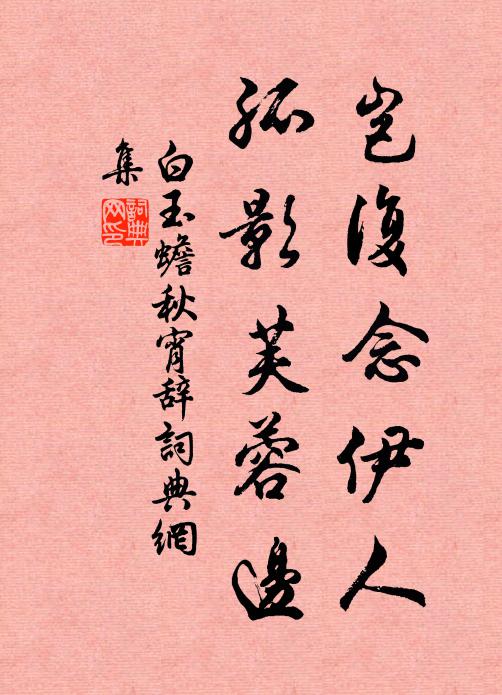 岂復念伊人
孤影芙蓉邊
白玉蟾秋宵辞詞典網
集
詞典網印